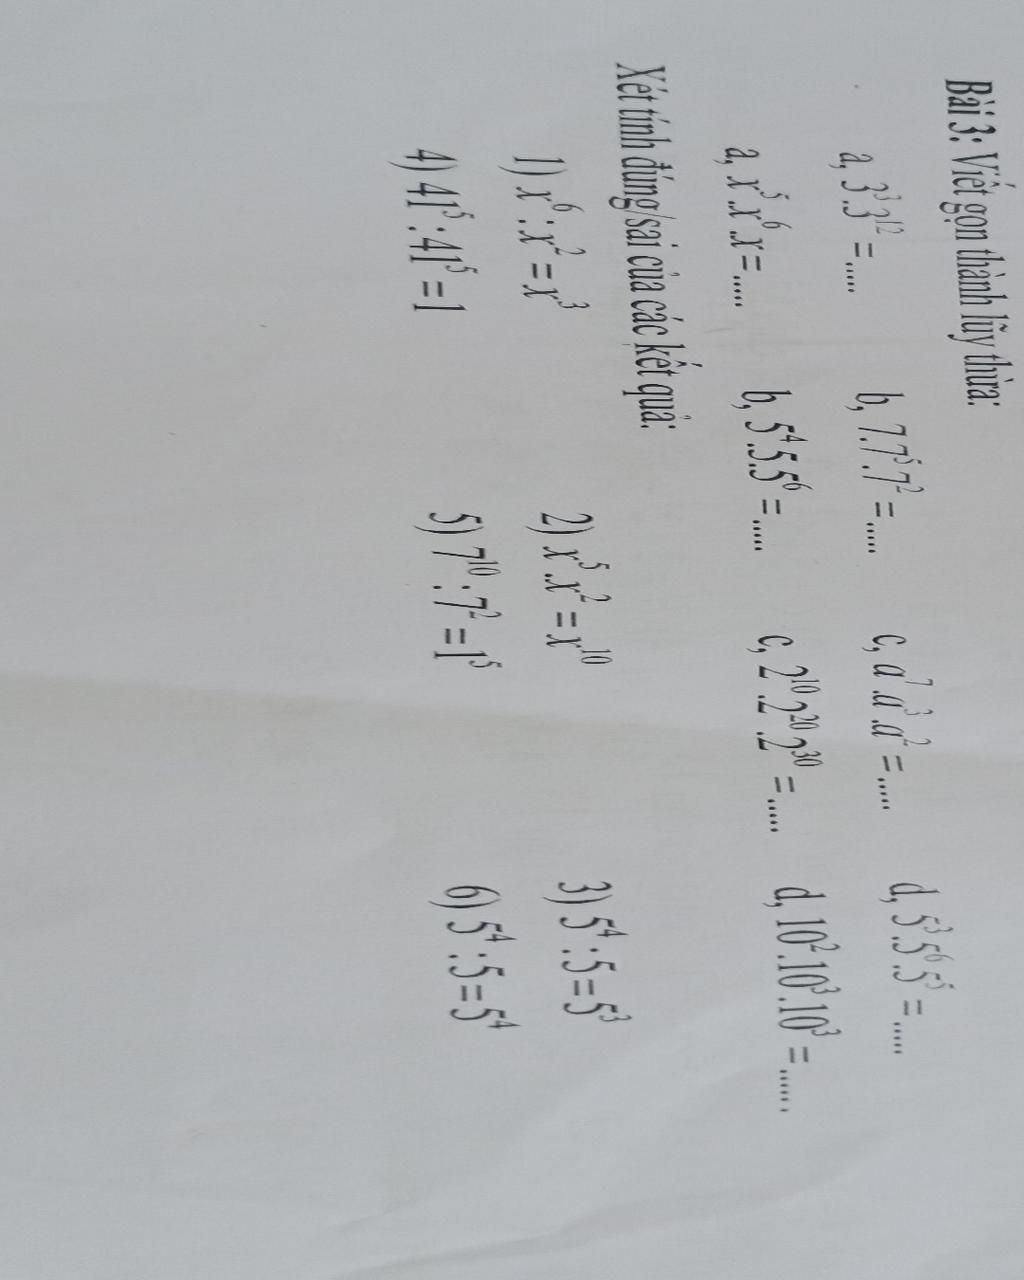 Bài 3: Viết gọn thành lũy thừa:
a, 3³.3¹² = ..... b, 7.7⁵.7² = ..... c, a⁷.a³.a² = ..... d, 5³.5⁶.5⁵ = .....
a, x⁵.x⁶.x = ..... b, 5⁴.5.5⁶ = ..... c, 2¹⁰.2²⁰.2³⁰ = ..... d, 10².10³.10³ = ......
Xét tính đúng/sai của các kết quả:
1) x⁶ : x² = x³ 2) x⁵.x² = x¹⁰ 3) 5⁴ : 5 = 5³
4) 41⁵ : 41⁵ = 1 5) 7¹⁰ : 7² = 1⁵ 6) 5⁴ : 5 = 5⁴